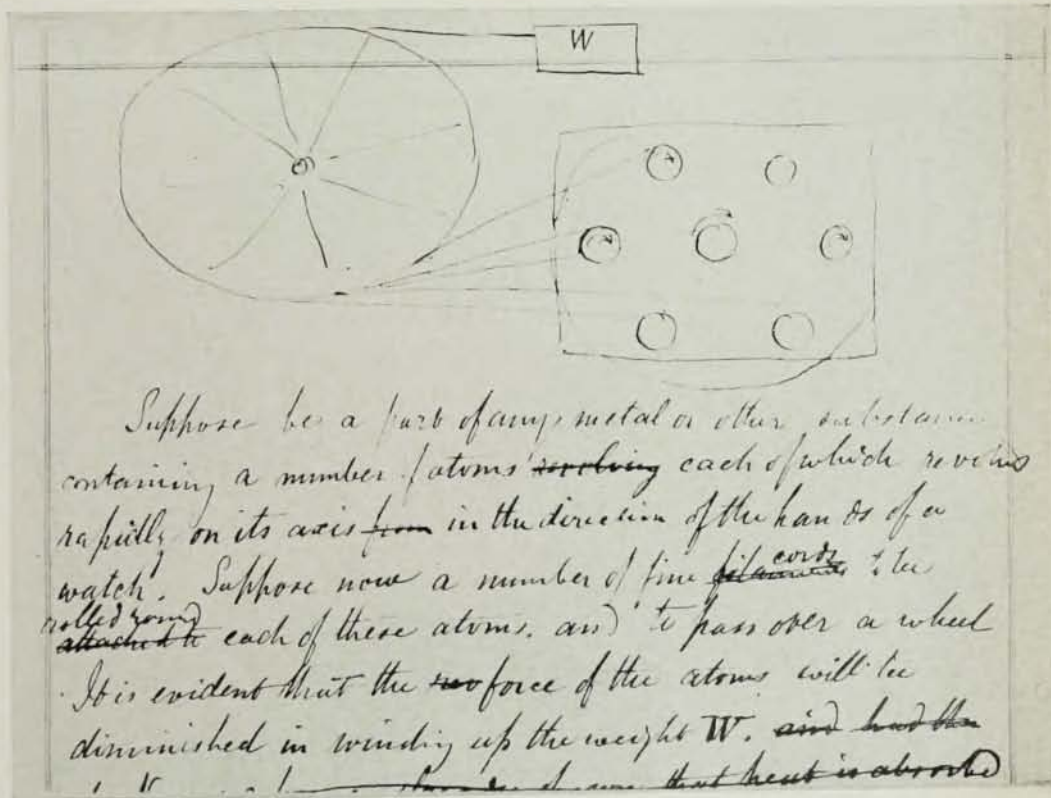 W
Suppose be a part of any metal or other substance
containing a number of atoms revolving each of which revolves
rapidly on its axis from in the direction of the hands of a
watch. Suppose now a number of fine filaments cords to be
attached to rolled round each of these atoms. and to pass over a wheel
It is evident that the rev force of the atoms will be
diminished in winding up the weight W. and had the
that heat is absorbed